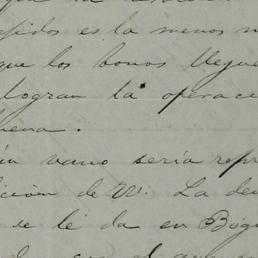 es la menos
que los bonos llegue
logran la operac
buena.
vano sería repr
ición de W. La de
se le da en Bog